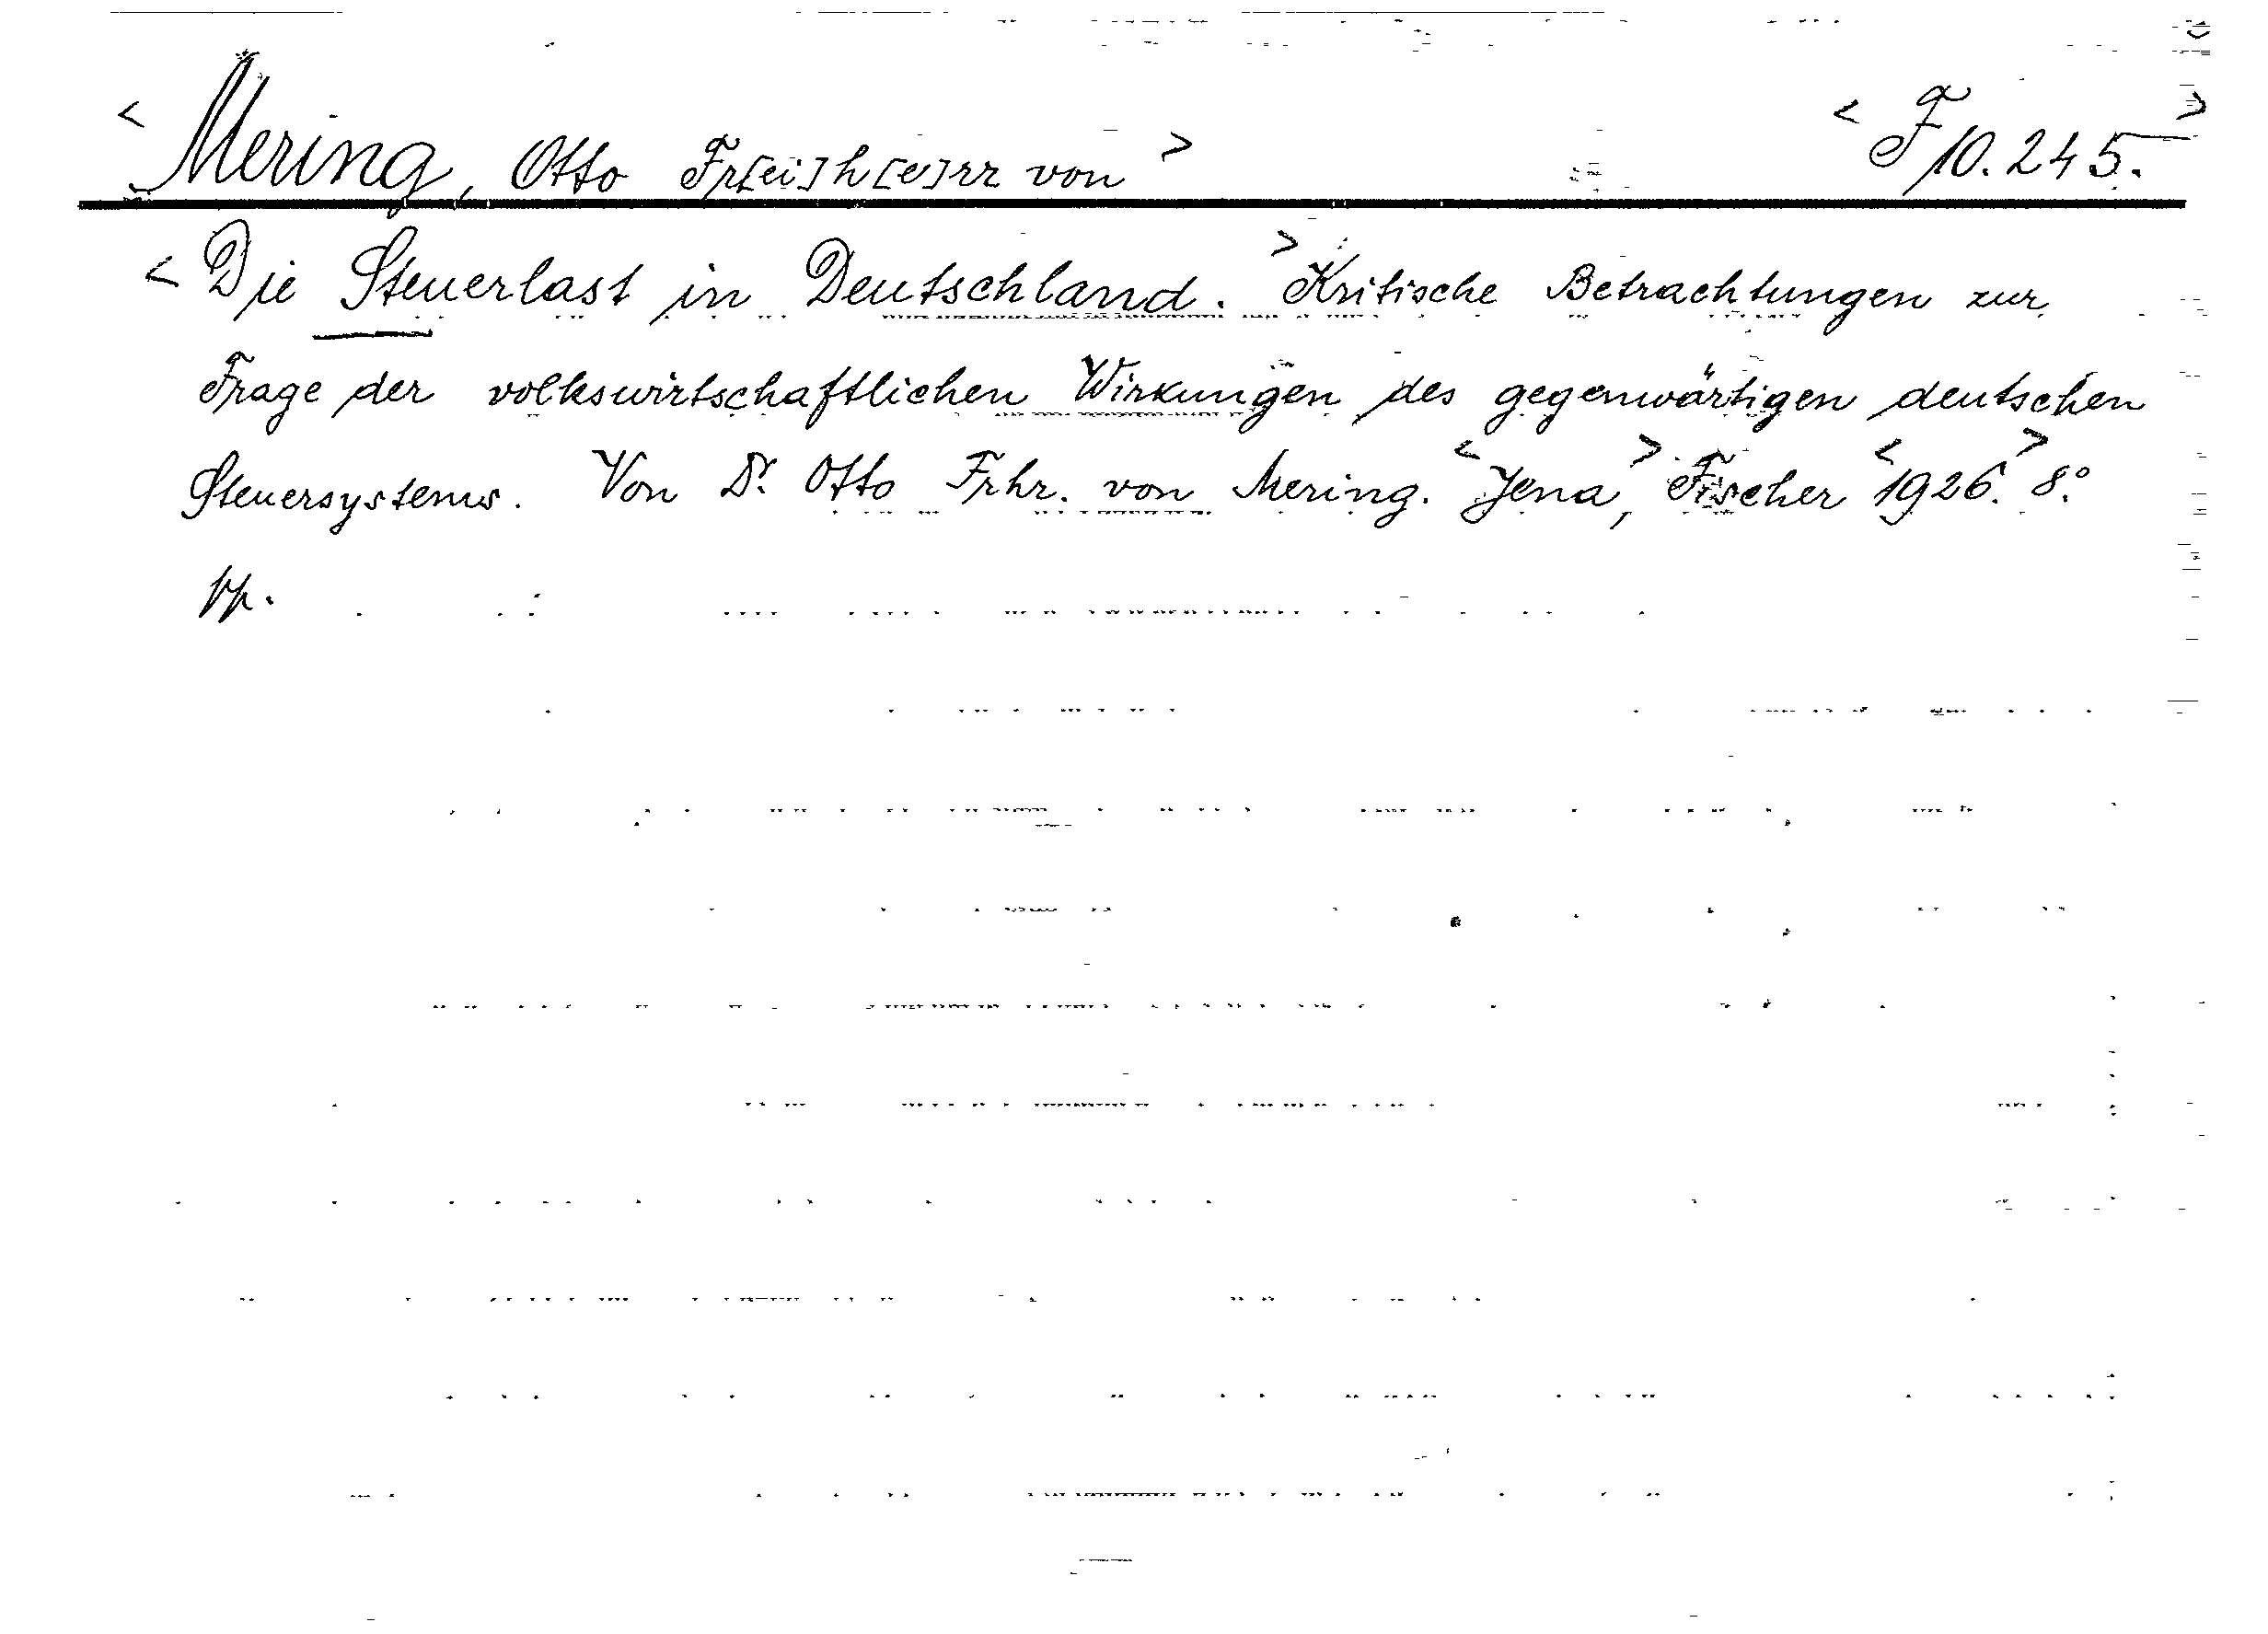 < Mering, Otto Fr[ei]h[e]rr von > < F 10.245. >
< Die Steuerlast in Deutschland. > Kritische Betrachtungen zur
Frage der volkswirtschaftlichen Wirkungen des gegenwärtigen deutschen
Steuersystems. Von Dr. Otto Frhr. von Mering. < Jena, > Fischer < 1926. > 8.°